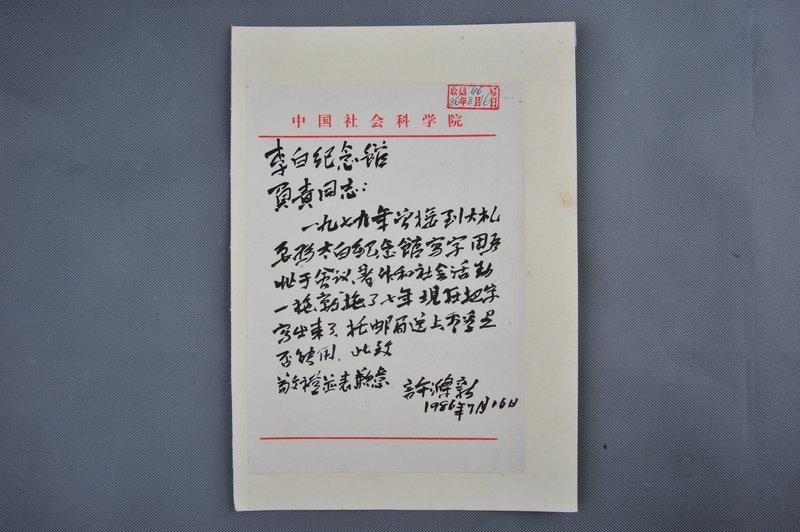 收信 46 号
86年8月6日
中国社会科学院
李白纪念馆
负责同志：
一九七九年曾接到大札
名为太白纪念馆写字因
忙于会议、署外和社会活动
一拖就拖了七年现在把字
写出来了托邮局送上不知是
否能用．此致
敬礼并表歉意
许涤新
1986年7月16日